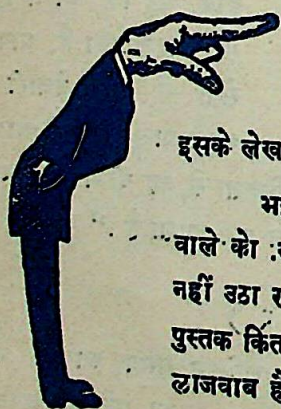 इसके लेख
भ
वाले को
नहीं उठा
पुस्तक कित
लाजवाब है